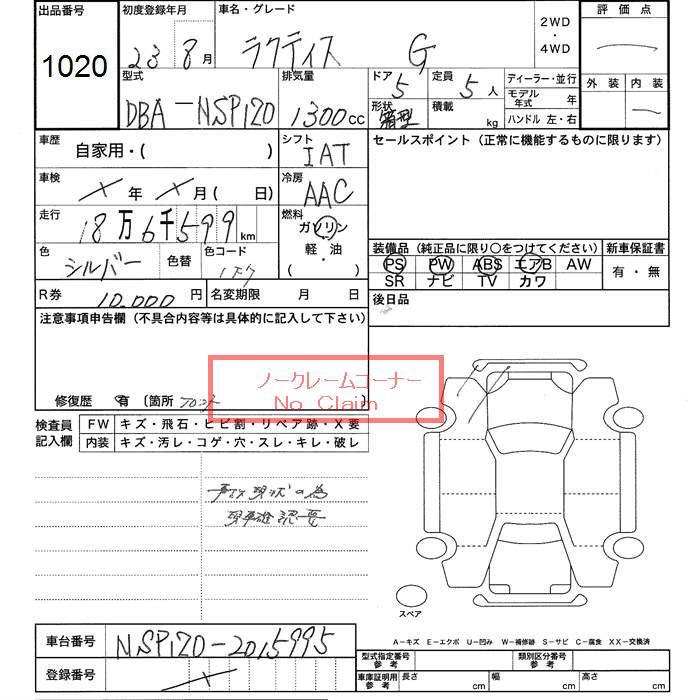 出品番号 初度登録年月 車名・グレード 評価点
1020 23 8月 ラクティス G 2WD・4WD
外装 内装
型式 排気量 ドア 5 定員 5人 ディーラー・並行
DBA-NSP120 1300cc 形状 箱型 積載 kg モデル年式 年
ハンドル 左・右
車歴 自家用・( ) シフト IAT セールスポイント (正常に機能するものに限ります)
車検 年 月( 日) 冷房 AAC
走行 18万6千599km 燃料 ガソリン
軽・油
・( )
色 シルバー 色替 色コード
装備品 (純正品に限り○をつけてください) 新車保証書
PS PW ABS エアB AW 有・無
SR ナビ TV カワ
R券 10,000円 名変期限 月 日 後日品
注意事項申告欄 (不具合内容等は具体的に記入して下さい)
ノークレームコーナー
No Claim
修復歴 有 (箇所 フロント )
検査員記入欄 FW キズ・飛石・ヒビ割・リペア跡・X要
内装 キズ・汚レ・コゲ・穴・スレ・キレ・破レ
現状の為
現車確認要
スペア
A-キズ E-エクボ U-凹み W-補修跡 S-サビ C-腐食 XX-交換済
車台番号 NSP120-2015995
登録番号
型式指定番号 参考 類別区分番号 参考
車庫証明用 参考 長さ cm 幅 cm 高さ cm